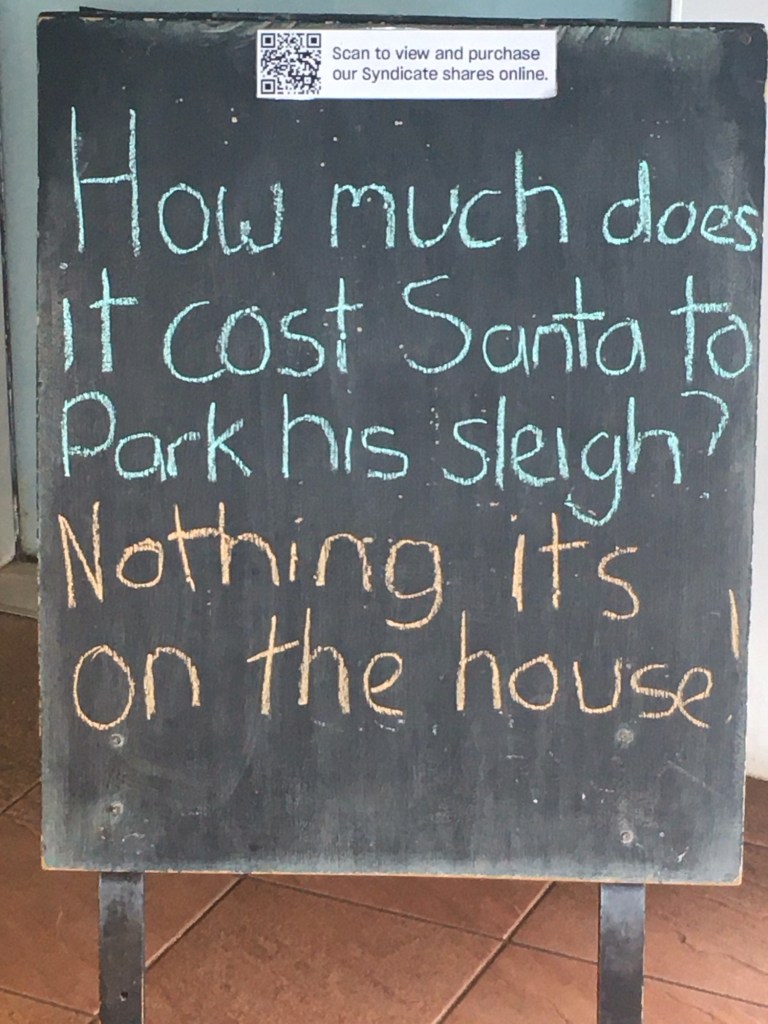 Scan to view and purchase
our Syndicate shares online.
How much does
it cost Santa to
Park his sleigh?
Nothing its
on the house!